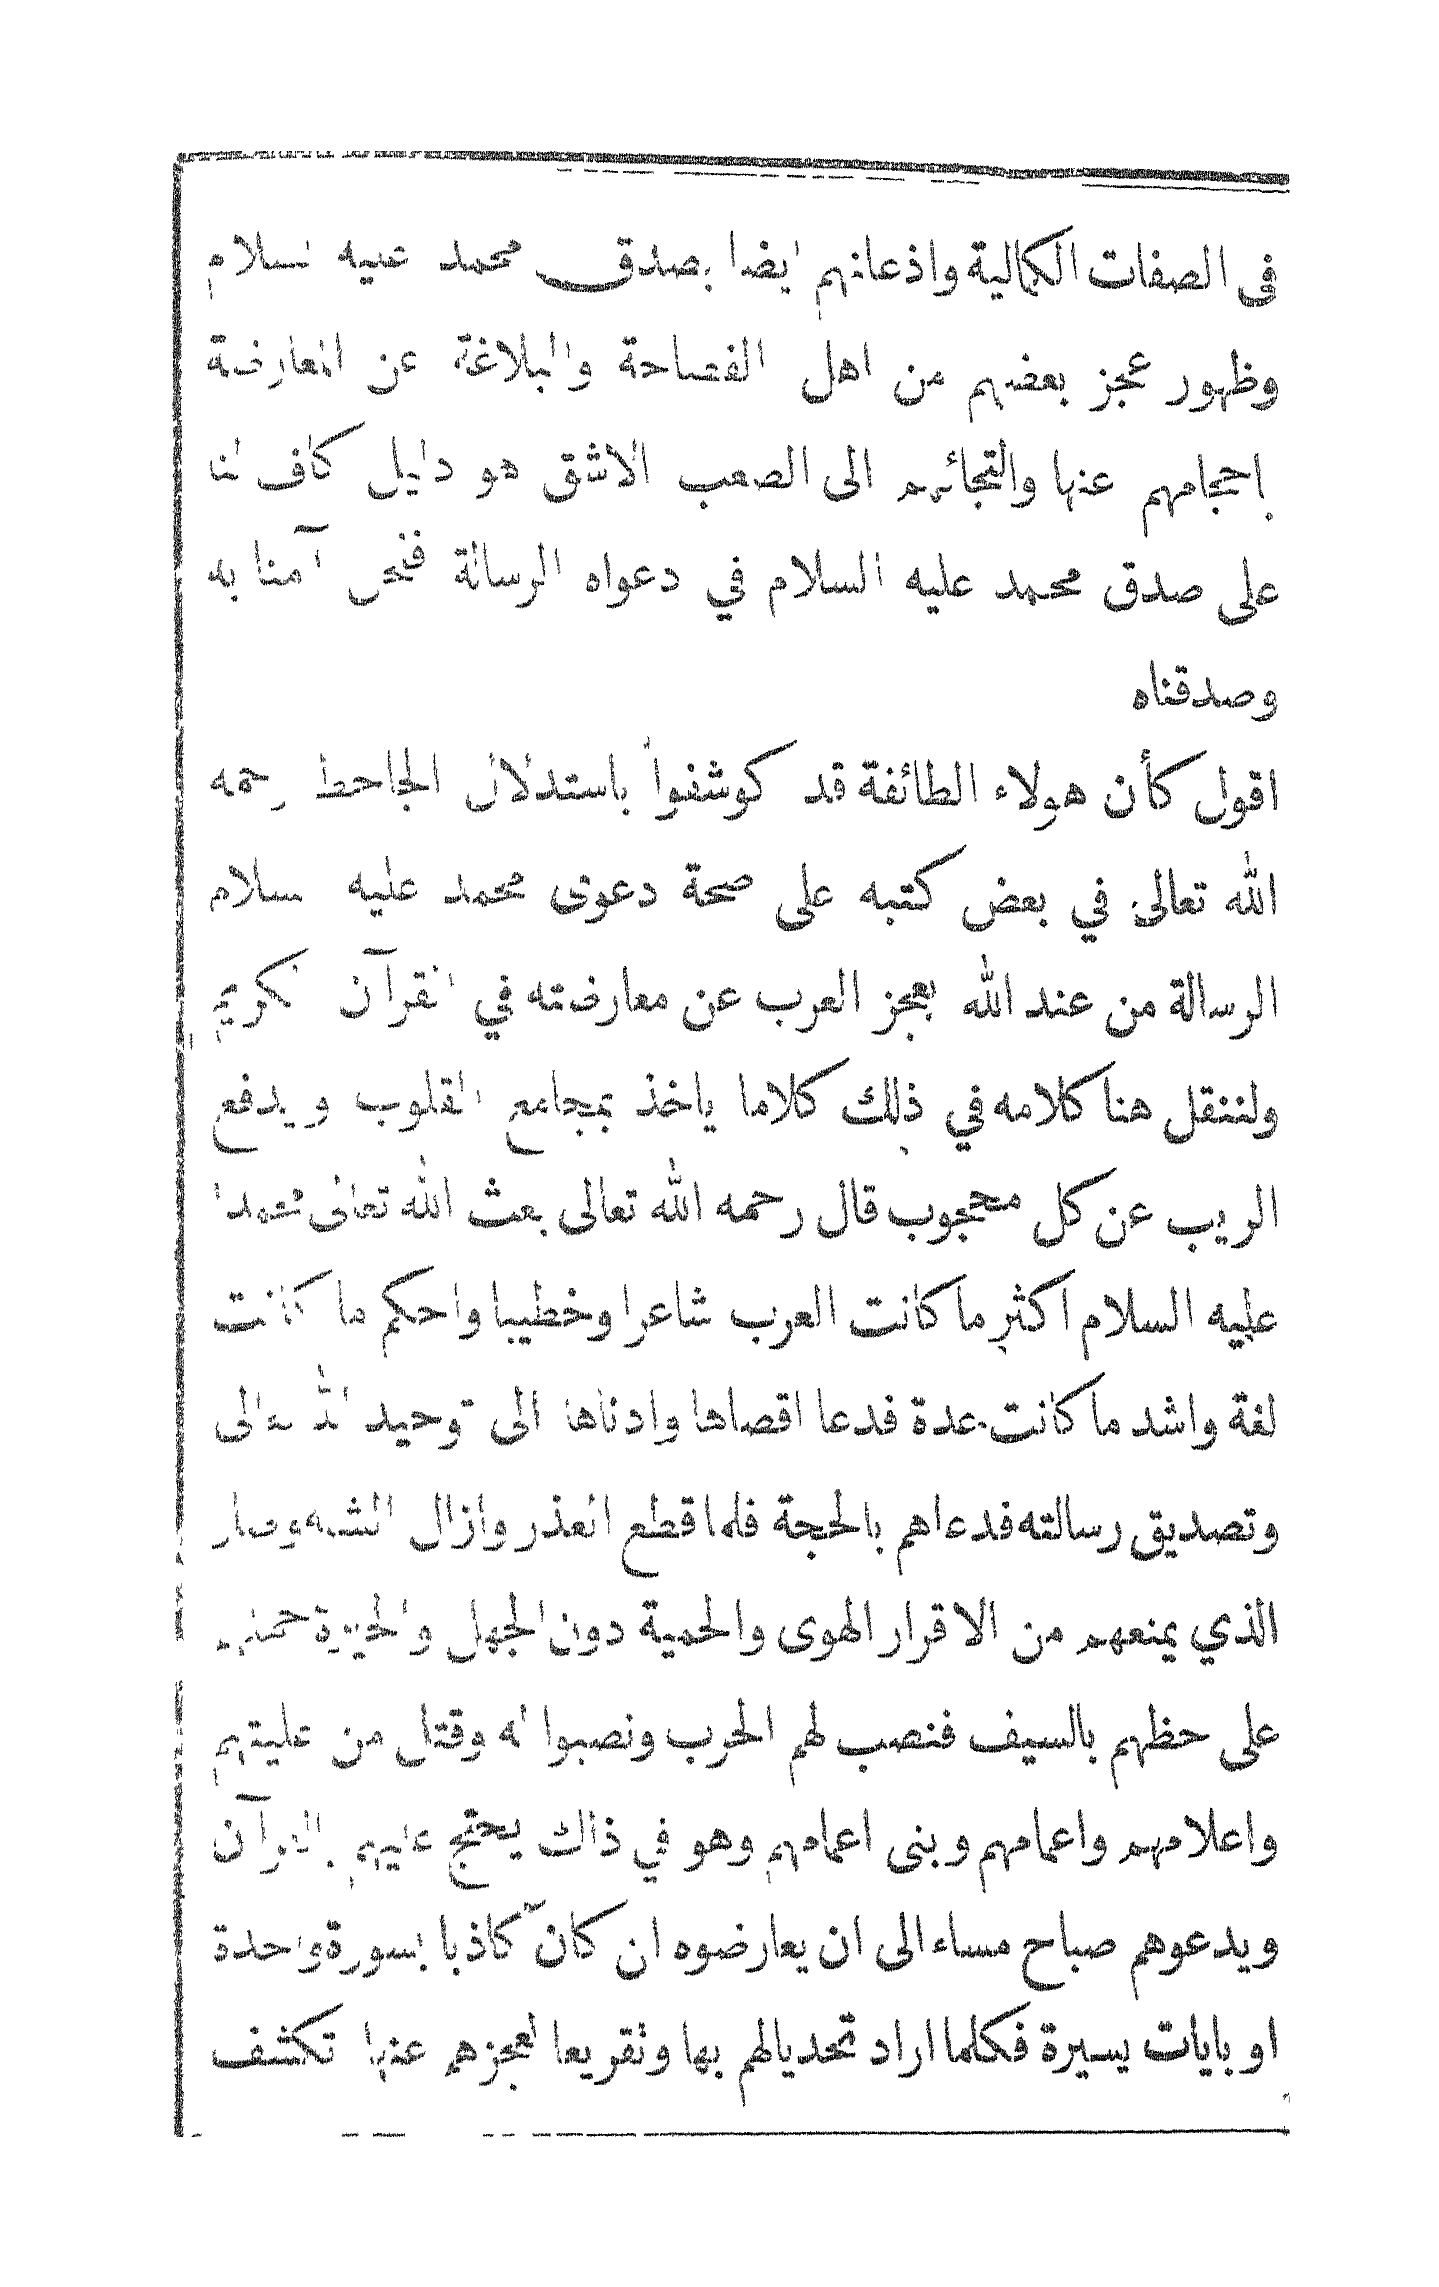 فى الصفات الكمالية واذعانهم ايضا بصدق محمد عليه السلام
وظهور عجز بعضهم من اهل الفصاحة والبلاغة عن المعارضة
باحجامهم عنها والتجائهم الى الصعب الاشق هو دليل كاف لنا
على صدق محمد عليه السلام في دعواه الرسالة فنحن آمنا به
وصدقناه
اقول كأن هولاء الطائفة قد كوشفوا باستدلال الجاحظ رحمه
الله تعالى في بعض كتبه على صحة دعوى محمد عليه السلام
الرسالة من عند الله بعجز العرب عن معارضته في القرآن الكريم
ولننقل هنا كلامه في ذلك كلاما ياخذ بمجامع القلوب ويدفع
الريب عن كل محجوب قال رحمه الله تعالى بعث الله تعالى محمدا
عليه السلام اكثر ما كانت العرب شاعرا وخطيبا واحكم ما كانت
لغة واشد ما كانت عدة فدعا اقصاها وادناها الى توحيد الله تعالى
وتصديق رسالته فدعاهم بالحجة فلما قطع العذر وازال الشبه وصار
الذي يمنعهم من الاقرار الهوى والحمية دون الجهل والحيرة حملهم
على حظهم بالسيف فنصب لهم الحرب ونصبوا له وقتل من عليتهم
واعلامهم واعمامهم وبنى اعمامهم وهو في ذلك يحتج عليهم بالقرآن
ويدعوهم صباح مساء الى ان يعارضوه ان كان كاذبا بسورة واحدة
او بايات يسيرة فكلما اراد تحديالهم بها وتقريعا لعجزهم عنها تكشف